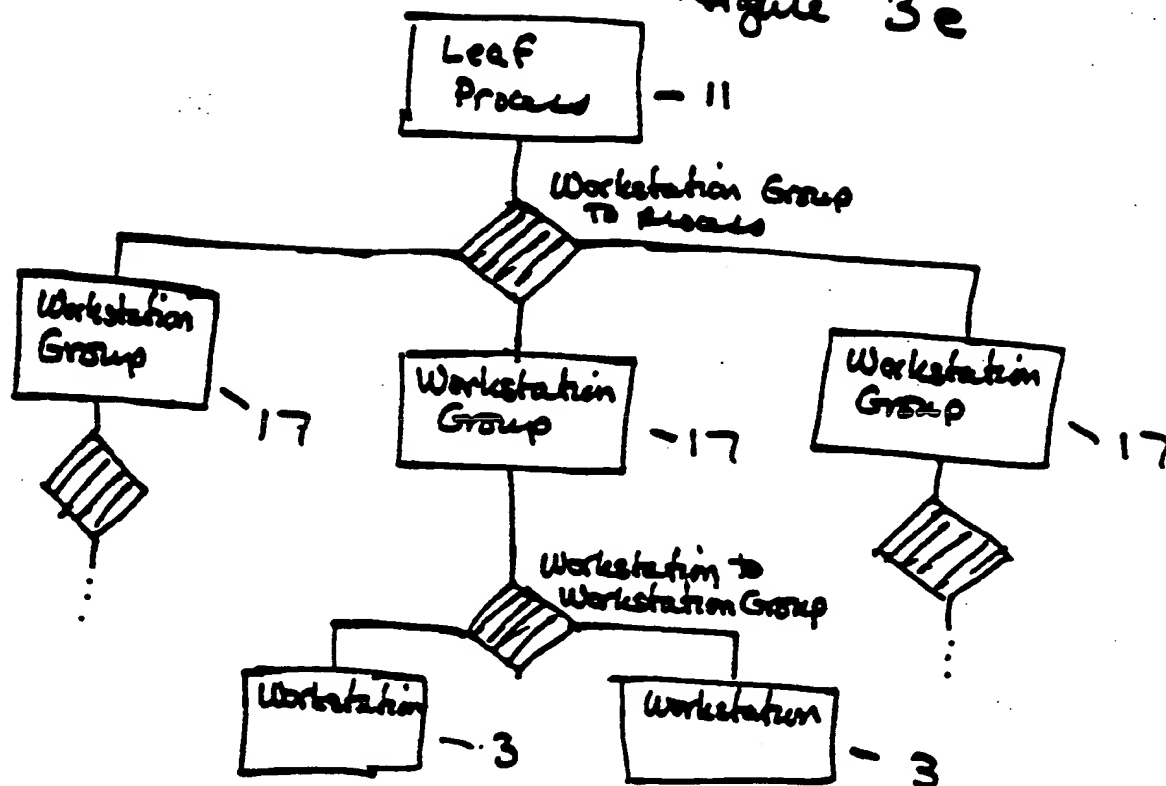 Figure 3e
Leaf
Process
- 11
Workstation Group
To Process
Workstation
Group
17
Workstation
Group
17
Workstation
Group
17
Workstation to
Workstation Group
Workstation
3
Workstation
3